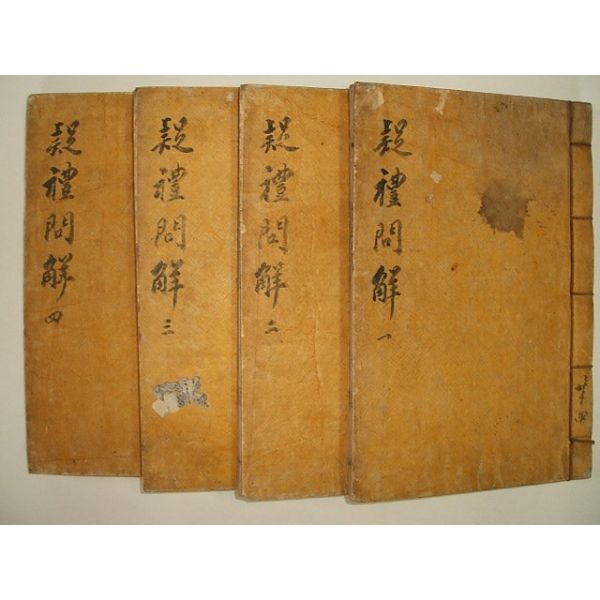 疑禮問解 一
疑禮問解 二
疑禮問解 三
疑禮問解 四
共四